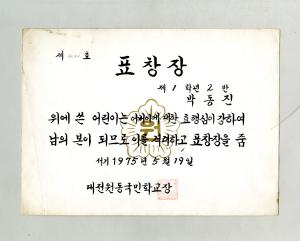 제 호
표창장
제 1 학년 2 반
박동진
위에 쓴 어린이는 어버이에 대한 효행심이 강하여
남의 본이 되므로 이를 격려하고 표창장을 줌
서기 1975년 5월 19일
대전원동국민학교장
원